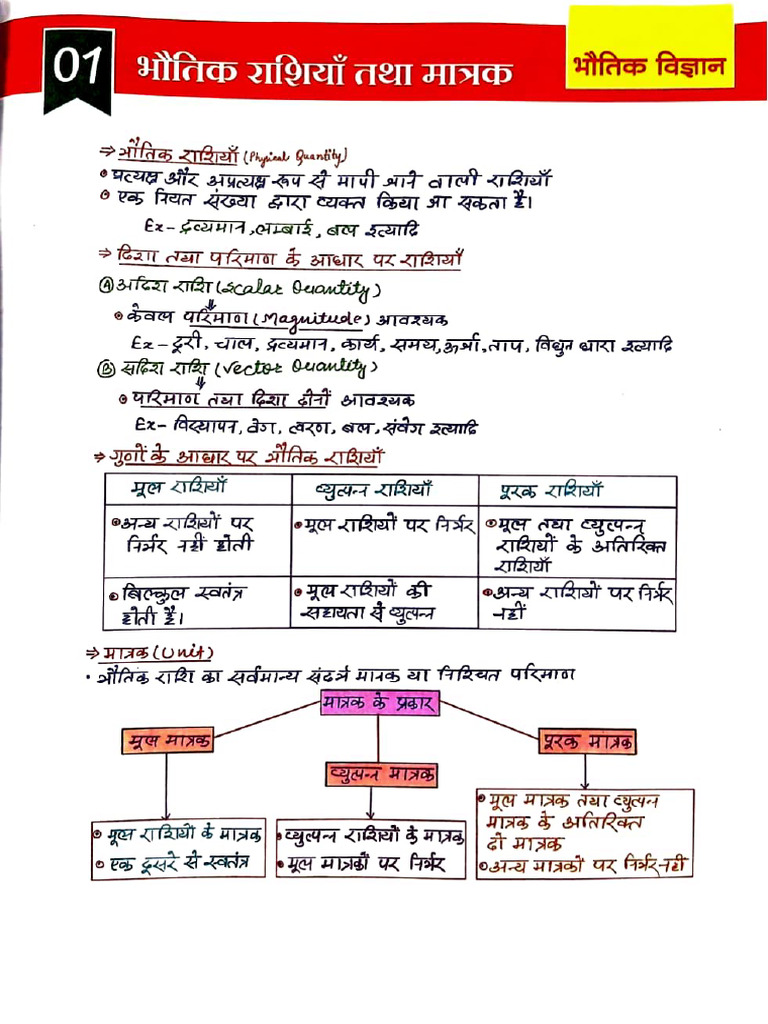 01
भौतिक राशियाँ तथा मात्रक
भौतिक विज्ञान
⇒ भौतिक राशियाँ (Physical Quantity)
• प्रत्यक्ष और अप्रत्यक्ष रूप से मापी जाने वाली राशियाँ
• एक नियत संख्या द्वारा व्यक्त किया जा सकता है।
Ex- द्रव्यमान, लम्बाई, बल इत्यादि
⇒ दिशा तथा परिमाण के आधार पर राशियाँ
Ⓐ अदिश राशि (Scalar Quantity)
• केवल परिमाण (Magnitude) आवश्यक
Ex- दूरी, चाल, द्रव्यमान, कार्य, समय, ऊर्जा, ताप, विधुत धारा इत्यादि
Ⓑ सदिश राशि (Vector Quantity)
• परिमाण तथा दिशा दोनों आवश्यक
Ex- विस्थापन, वेग, त्वरण, बल, संवेग इत्यादि
⇒ गुणों के आधार पर भौतिक राशियाँ
मूल राशियाँ
व्युत्पन्न राशियाँ
पूरक राशियाँ
• अन्य राशियों पर
निर्भर नहीं होती
• मूल राशियों पर निर्भर
• मूल तथा व्युत्पन्न
राशियों के अतिरिक्त
राशियाँ
• बिल्कुल स्वतंत्र
होती है।
• मूल राशियों की
सहायता से व्युत्पन्न
• अन्य राशियों पर निर्भर
नहीं
⇒ मात्रक (Unit)
• भौतिक राशि का सर्वमान्य संदर्भ मानक या निश्चित परिमाण
मात्रक के प्रकार
मूल मात्रक
व्युत्पन्न मात्रक
पूरक मात्रक
• मूल राशियों के मात्रक
• एक दूसरे से स्वतंत्र
• व्युत्पन्न राशियों के मात्रक
• मूल मात्रकों पर निर्भर
• मूल मात्रक तथा व्युत्पन्न
मात्रक के अतिरिक्त
दो मात्रक
• अन्य मात्रकों पर निर्भर नहीं